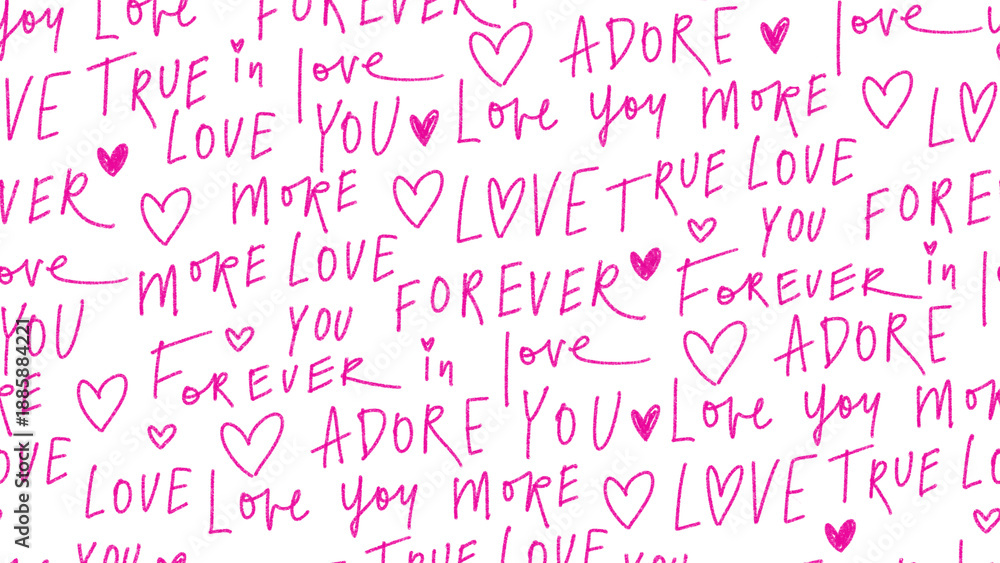 you Love FOREVER ADORE love y
OVE TRUE in love Love you MORE LOV
LOVE YOU
EVER MORE LOVE TRUE LOVE
YOU FOREV
love MORE LOVE FOREVER FOREVER in l
YOU YOU
FOREVER in love ADORE
RE ADORE YOU Love you MOR
OVE LOVE Love you MORE LOVE TRUE LO
YOU TRUE LOVE YOU
Adobe Stock | #1885884221